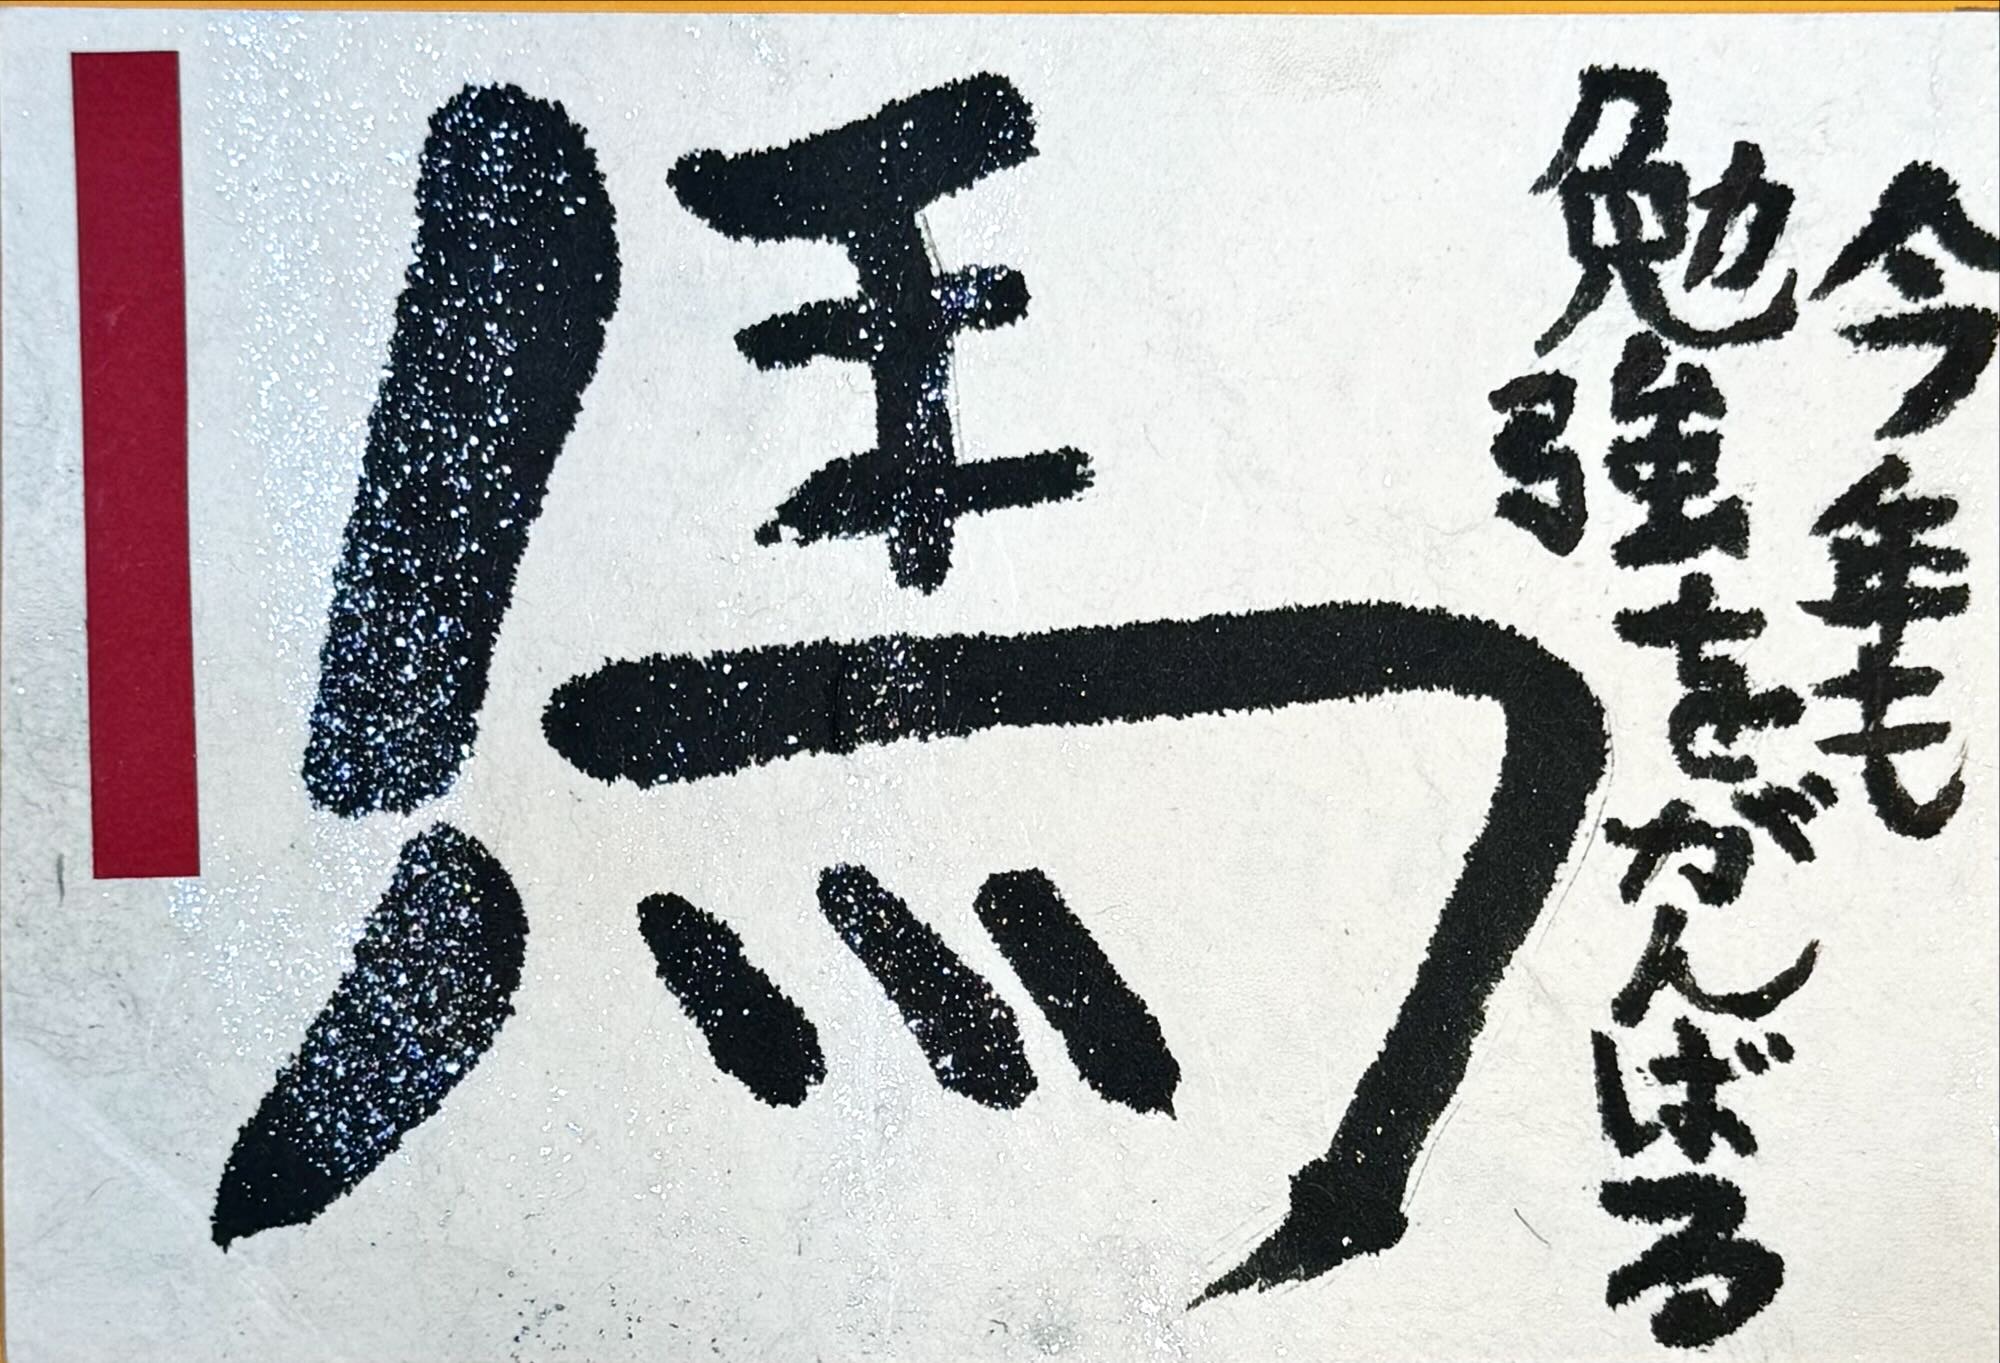 今年も
勉強をがんばる
馬